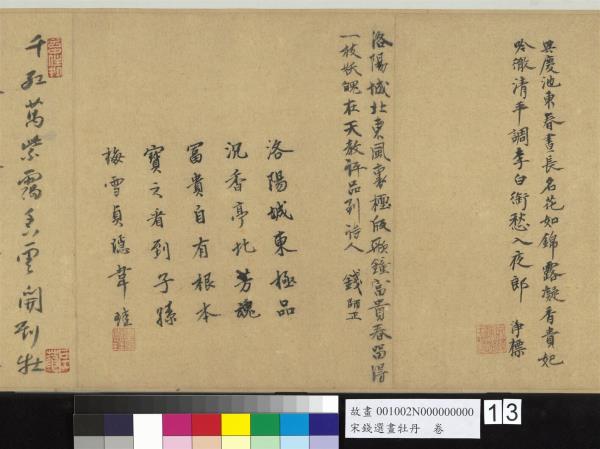 興慶池東春晝長名花如錦露凝香貴妃
吟徹清平調李白銜愁入夜郎 淨標
洛陽城北東風裏極品殿餘富貴春留得
一枝妖魄在天教評品到詩人 錢
洛陽城東極品
沉香亭北芳魂
富貴自有根本
寶之者到子孫
梅雪貞德韋
千紅萬紫靄香雲開到牡
故畫 001002N000000000
宋錢選畫牡丹 卷
13